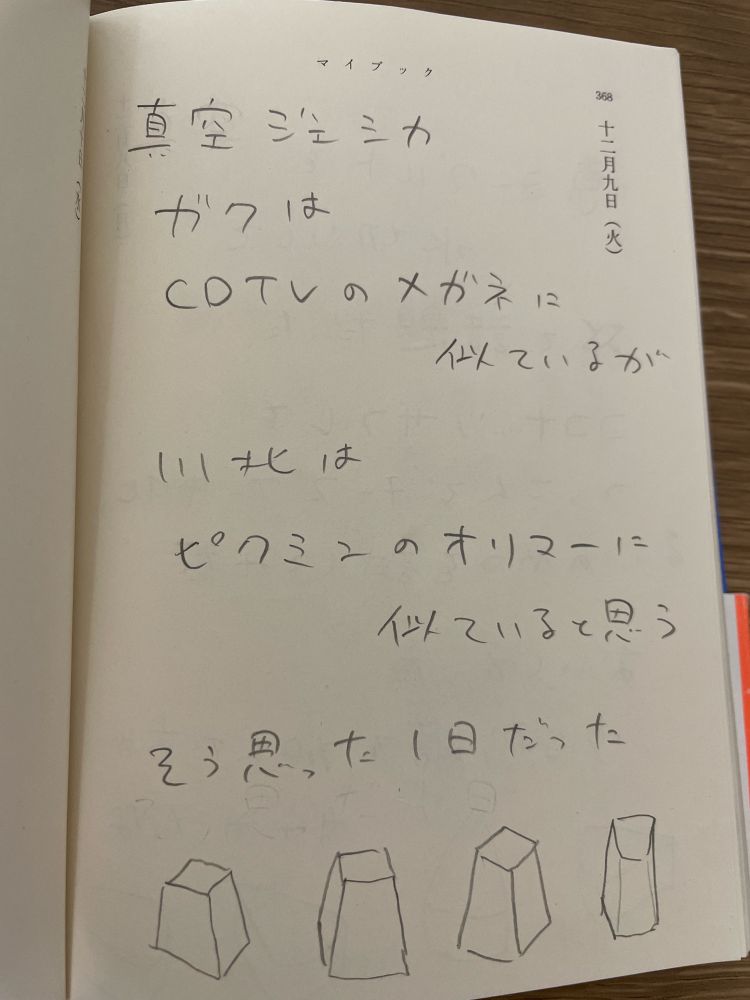 マイブック
368
十二月九日(火)
真空ジェシカ
ガクは
CDTVのメガネに
似ているが
川北は
ピクミンのオリマーに
似ていると思う
そう思った1日だった